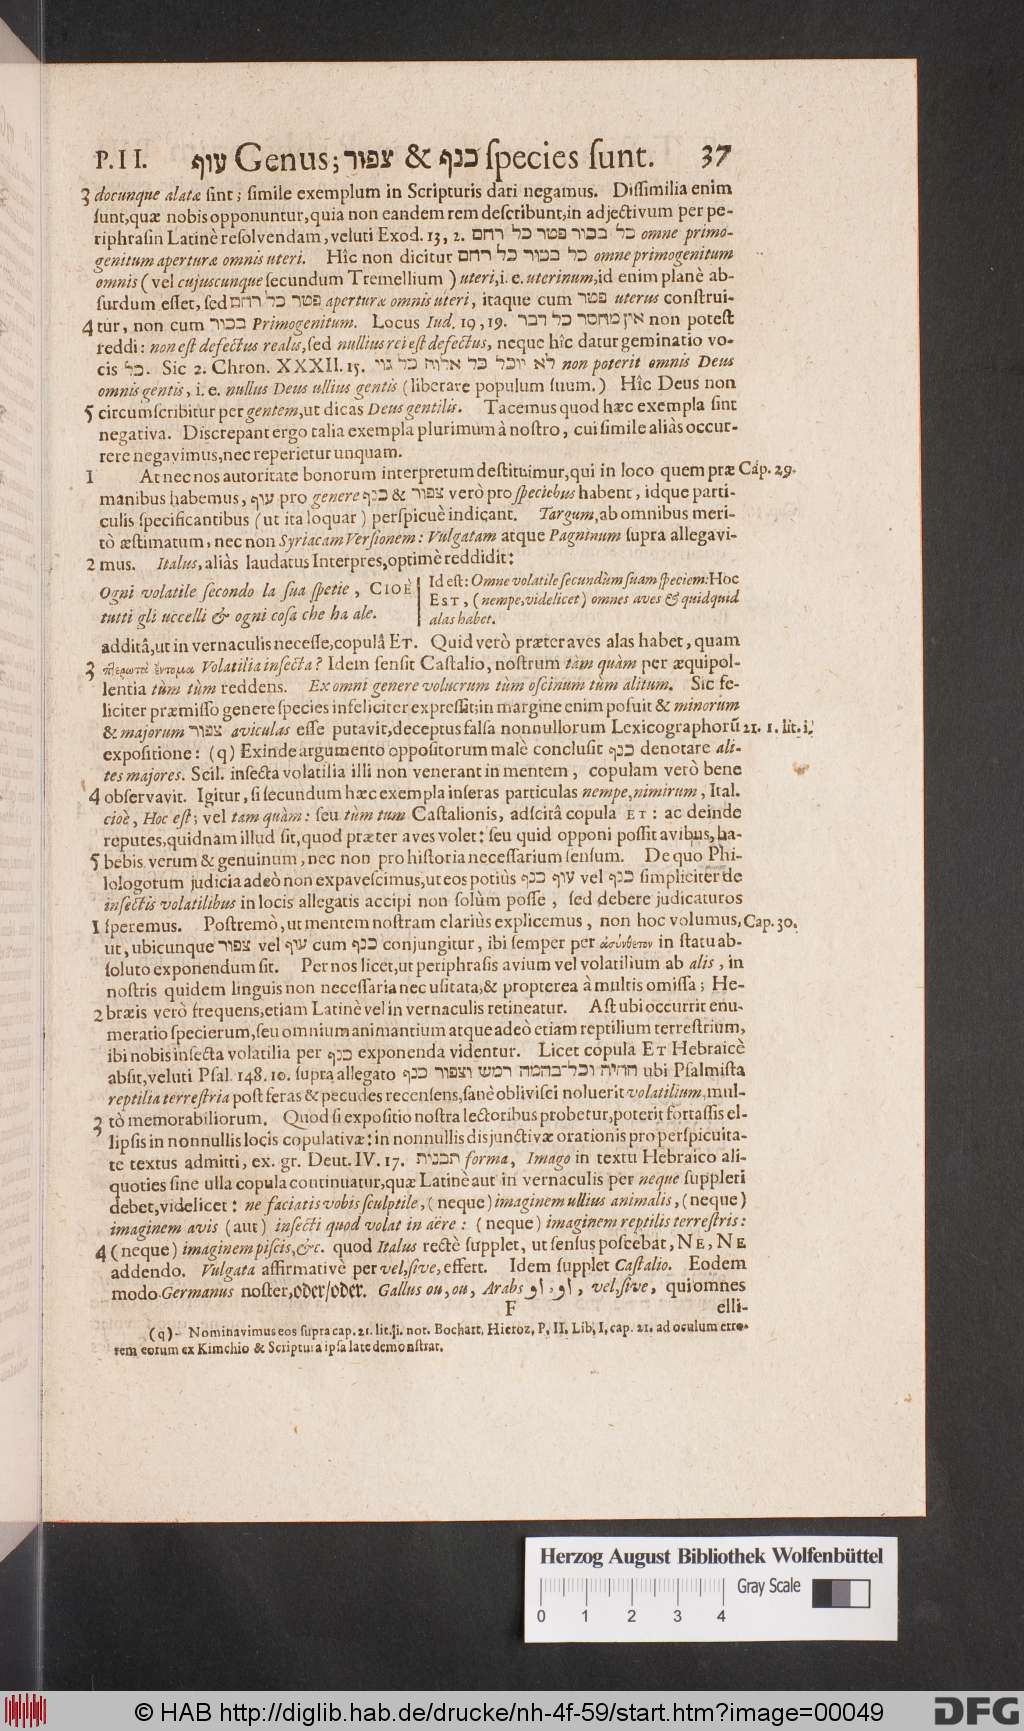 P. II. עוף Genus; צפור & כנף ſpecies ſunt. 37
3 docunque alatæ ſint; ſimile exemplum in Scripturis dari negamus. Diſſimilia enim
ſunt, quæ nobis opponuntur, quia non eandem rem deſcribunt, in adjectivum per pe-
riphraſin Latinè reſolvendam, veluti Exod. 13, 2. כל בכור פטר כל רחם omne primo-
genitum aperturæ omnis uteri. Hîc non dicitur כל בכור כל רחם omne primogenitum
omnis (vel cujuscunque ſecundum Tremellium) uteri, i. e. uterinum, id enim planè ab-
ſurdum eſſet, ſed פטר כל רחם aperturæ omnis uteri, itaque cum פטר uterus conſtrui-
4 tur, non cum בכור Primogenitum. Locus Iud. 19, 19. אין מחסר כל דבר non poteſt
reddi: non eſt defectus realis, ſed nullius rei eſt defectus, neque hîc datur geminatio vo-
cis כל. Sic 2. Chron. XXXII. 15. לא יוכל כל אלוה כל גוי non poterit omnis Deus
omnis gentis, i. e. nullus Deus ullius gentis (liberare populum ſuum.) Hîc Deus non
5 circumſcribitur per gentem, ut dicas Deus gentilis. Tacemus quod hæc exempla ſint
negativa. Diſcrepant ergo talia exempla plurimum à noſtro, cui ſimile aliàs occur-
rere negavimus, nec reperietur unquam.
1 At nec nos autoritate bonorum interpretum deſtituimur, qui in loco quem præ Cap. 29.
manibus habemus, עוף pro genere כנף & צפור verò pro ſpeciebus habent, idque parti-
culis ſpecificantibus (ut ita loquar) perſpicuè indicant. Targum, ab omnibus meri-
tò æſtimatum, nec non Syriacam Verſionem: Vulgatam atque Pagninum ſupra allegavi-
2 mus. Italus, aliàs laudatus Interpres, optimè reddidit:
Ogni volatile ſecondo la ſua ſpetie, CIOÈ
tutti gli uccelli & ogni coſa che ha ale.
Id eſt: Omne volatile ſecundùm ſuam ſpeciem: HOC
EST, (nempe, videlicet) omnes aves & quidquid
alas habet.
additâ, ut in vernaculis neceſſe, copulâ ET. Quid verò præter aves alas habet, quam
3 πτερωτὰ ἔντομα Volatilia inſecta? Idem ſenſit Caſtalio, noſtrum tàm quàm per æquipol-
lentia tùm tùm reddens. Ex omni genere volucrum tùm oſcinum tùm alitum. Sic fe-
liciter præmiſſo genere ſpecies infeliciter expreſſit; in margine enim poſuit & minorum
& majorum צפור aviculas eſſe putavit, deceptus falſa nonnullorum Lexicographorũ 21. 1. lit. i.
expoſitione: (q) Exinde argumento oppoſitorum malè concluſit כנף denotare ali-
tes majores. Scil. inſecta volatilia illi non venerant in mentem, copulam verò bene
4 obſervavit. Igitur, ſi ſecundum hæc exempla inſeras particulas nempe, nimirum, Ital.
cioè, Hoc eſt; vel tam quàm: ſeu tùm tum Caſtalionis, adſcitâ copula ET: ac deinde
reputes, quidnam illud ſit, quod præter aves volet: ſeu quid opponi poſſit avibus, ha-
5 bebis verum & genuinum, nec non pro hiſtoria neceſſarium ſenſum. De quo Phi-
lologorum judicia adeò non expaveſcimus, ut eos potiùs עוף כנף vel כנף ſimpliciter de
inſectis volatilibus in locis allegatis accipi non ſolùm poſſe, ſed debere judicaturos
1 ſperemus. Poſtremò, ut mentem noſtram clariùs explicemus, non hoc volumus, Cap. 30.
ut, ubicunque צפור vel עוף cum כנף conjungitur, ibi ſemper per ἀσύνδετον in ſtatu ab-
ſoluto exponendum ſit. Per nos licet, ut periphraſis avium vel volatilium ab alis, in
noſtris quidem linguis non neceſſaria nec uſitata, & propterea à multis omiſſa; He-
2 bræis verò frequens, etiam Latinè vel in vernaculis retineatur. Aſt ubi occurrit enu-
meratio ſpecierum, ſeu omnium animantium atque adeò etiam reptilium terreſtrium,
ibi nobis inſecta volatilia per כנף exponenda videntur. Licet copula ET Hebraicè
abſit, veluti Pſal. 148. 10. ſupra allegato החית וכל־בהמה רמש וצפור כנף ubi Pſalmiſta
reptilia terreſtria poſt feras & pecudes recenſens, ſanè obliviſci noluerit volatilium, mul-
3 tò memorabiliorum. Quod ſi expoſitio noſtra lectoribus probetur, poterit fortaſſis el-
lipſis in nonnullis locis copulativæ: in nonnullis disjunctivæ orationis pro perſpicuita-
te textus admitti, ex. gr. Deut. IV. 17. תבנית forma, Imago in textu Hebraico ali-
quoties ſine ulla copula continuatur, quæ Latinè aut in vernaculis per neque ſuppleri
debet, videlicet: ne faciatis vobis ſculptile, (neque) imaginem ullius animalis, (neque)
imaginem avis (aut) inſecti quod volat in aëre: (neque) imaginem reptilis terreſtris:
4 (neque) imaginem piſcis, &c. quod Italus rectè ſupplet, ut ſenſus poſcebat, NE, NE
addendo. Vulgata affirmativè per vel, ſive, effert. Idem ſupplet Caſtalio. Eodem
modo Germanus noſter, oder/oder. Gallus ou, ou, Arabs او، او, vel, ſive, qui omnes
F elli-
(q) Nominavimus eos ſupra cap. 21. lit. ii. not. Bochart. Hieroz. P. II. Lib. I. cap. 21. ad oculum erro-
rem eorum ex Kimchio & Scriptura ipſa late demonſtrat.
Herzog August Bibliothek Wolfenbüttel
Gray Scale
0 1 2 3 4
© HAB http://diglib.hab.de/drucke/nh-4f-59/start.htm?image=00049
DFG